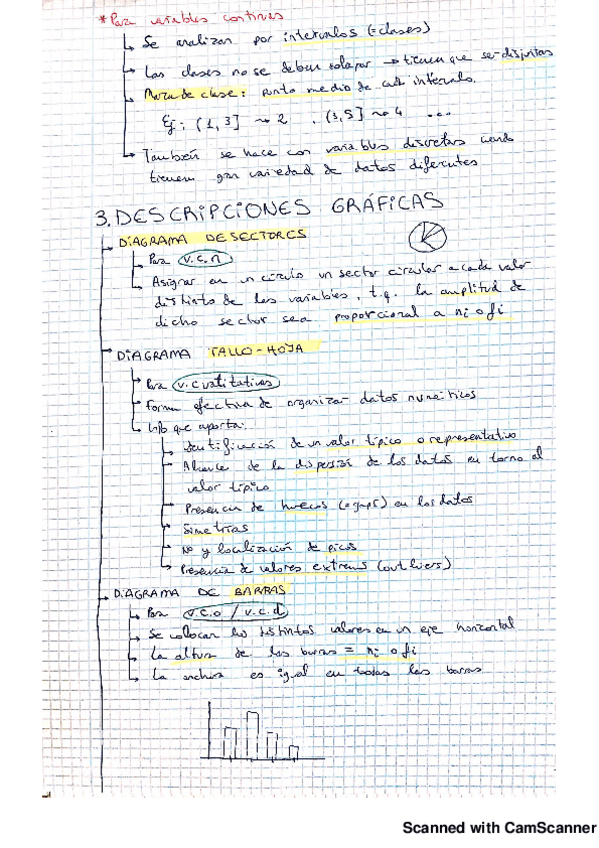 * Para variables continuas
Se analizan por intervalos (=clases)
Las clases no se deben solapar → tienen que ser disjuntas
Marca de clase: punto medio de cada intervalo.
Ej: (1, 3] ~> 2 , (3, 5] ~> 4 ...
También se hace con variables discretas cuando
tienen gran variedad de datos diferentes
3. DESCRIPCIONES GRÁFICAS
DIAGRAMA DE SECTORES
Para v.c.n
Asignar en un círculo un sector circular a cada valor
distinto de las variables, t.q. la amplitud de
dicho sector sea proporcional a ni o fi
DIAGRAMA TALLO-HOJA
Para v.cuatitativas
Forma efectiva de organizar datos numéricos
Info que aporta:
Identificación de un valor típico o representativo
Alcance de la dispersión de los datos en torno al
valor típico
Presencia de huecos (o gaps) en los datos
Simetrías
Nº y localización de picos
Presencia de valores extremos (outliers)
DIAGRAMA DE BARRAS
Para v.c.o / v.c.d
Se colocan los distintos valores en un eje horizontal
La altura de las barras = ni o fi
La anchura es igual en todas las barras
Scanned with CamScanner